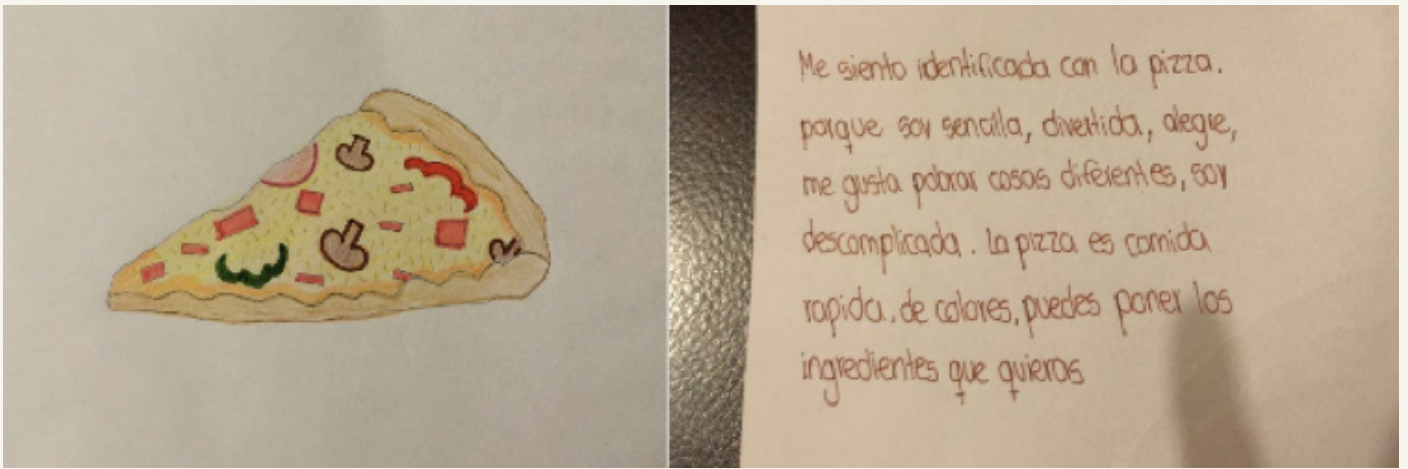 Me siento identificada con la pizza.
porque soy sencilla, divertida, alegre,
me gusta pobrar cosas diferentes, soy
descomplicada. La pizza es comida
rapida. de colores, puedes poner los
ingredientes que quieras